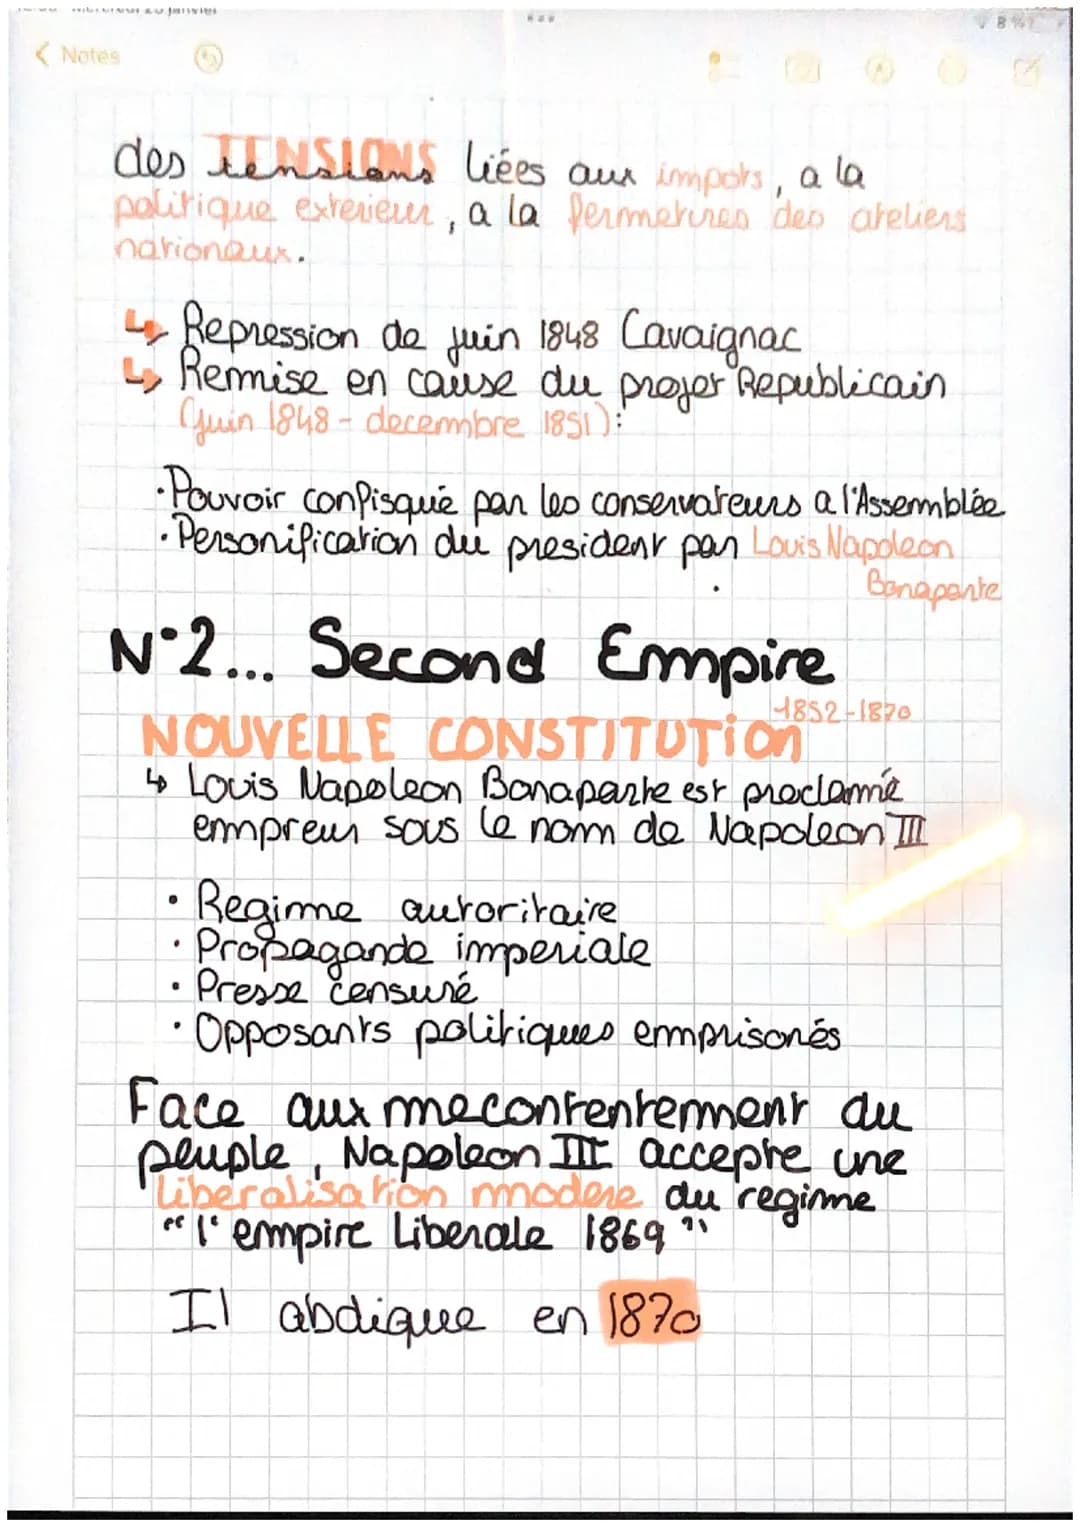 Mercredi 25 janvier
8 %
Notes
des TENSIONS tensions liées aux impots, a la
politique exterieur, a la fermetures des ateliers
nationaux.
↳ Repression de juin 1848 Cavaignac
↳ Remise en cause du projet Republicain
(juin 1848 - decembre 1851):
·Pouvoir confisqué par les conservateurs a l'Assemblée
·Personification du president par Louis Napoleon
Bonaparte
N°2... Second Empire
1852-1870
NOUVELLE CONSTITUTiON
↳ Louis Napoleon Bonaparte est proclamé
empreur sous le nom de Napoleon III
· Regime autoritaire
· Propagande imperiale
· Presse censuré
· Opposants politiques emprisonés
Face aux mecontentement du
peuple, Napoleon III accepte une
liberalisation modere du regime
"l'empire Liberale 1869"
Il abdique en 1870